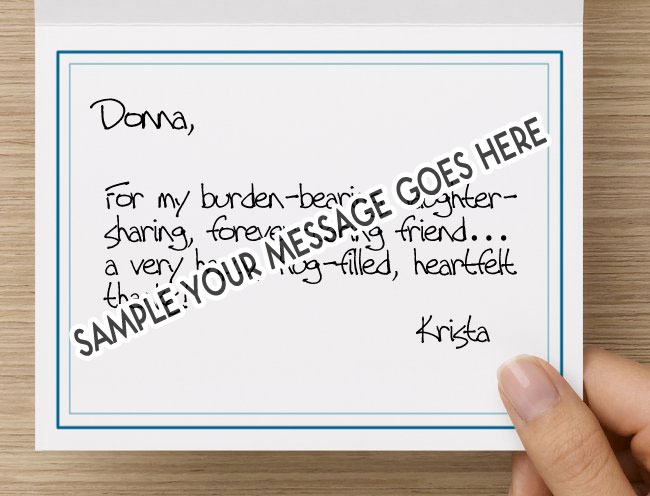 Donna,
For my burden-bearing, laughter-
sharing, forever friend...
a very hug-filled, heartfelt
Krista
SAMPLE YOUR MESSAGE GOES HERE